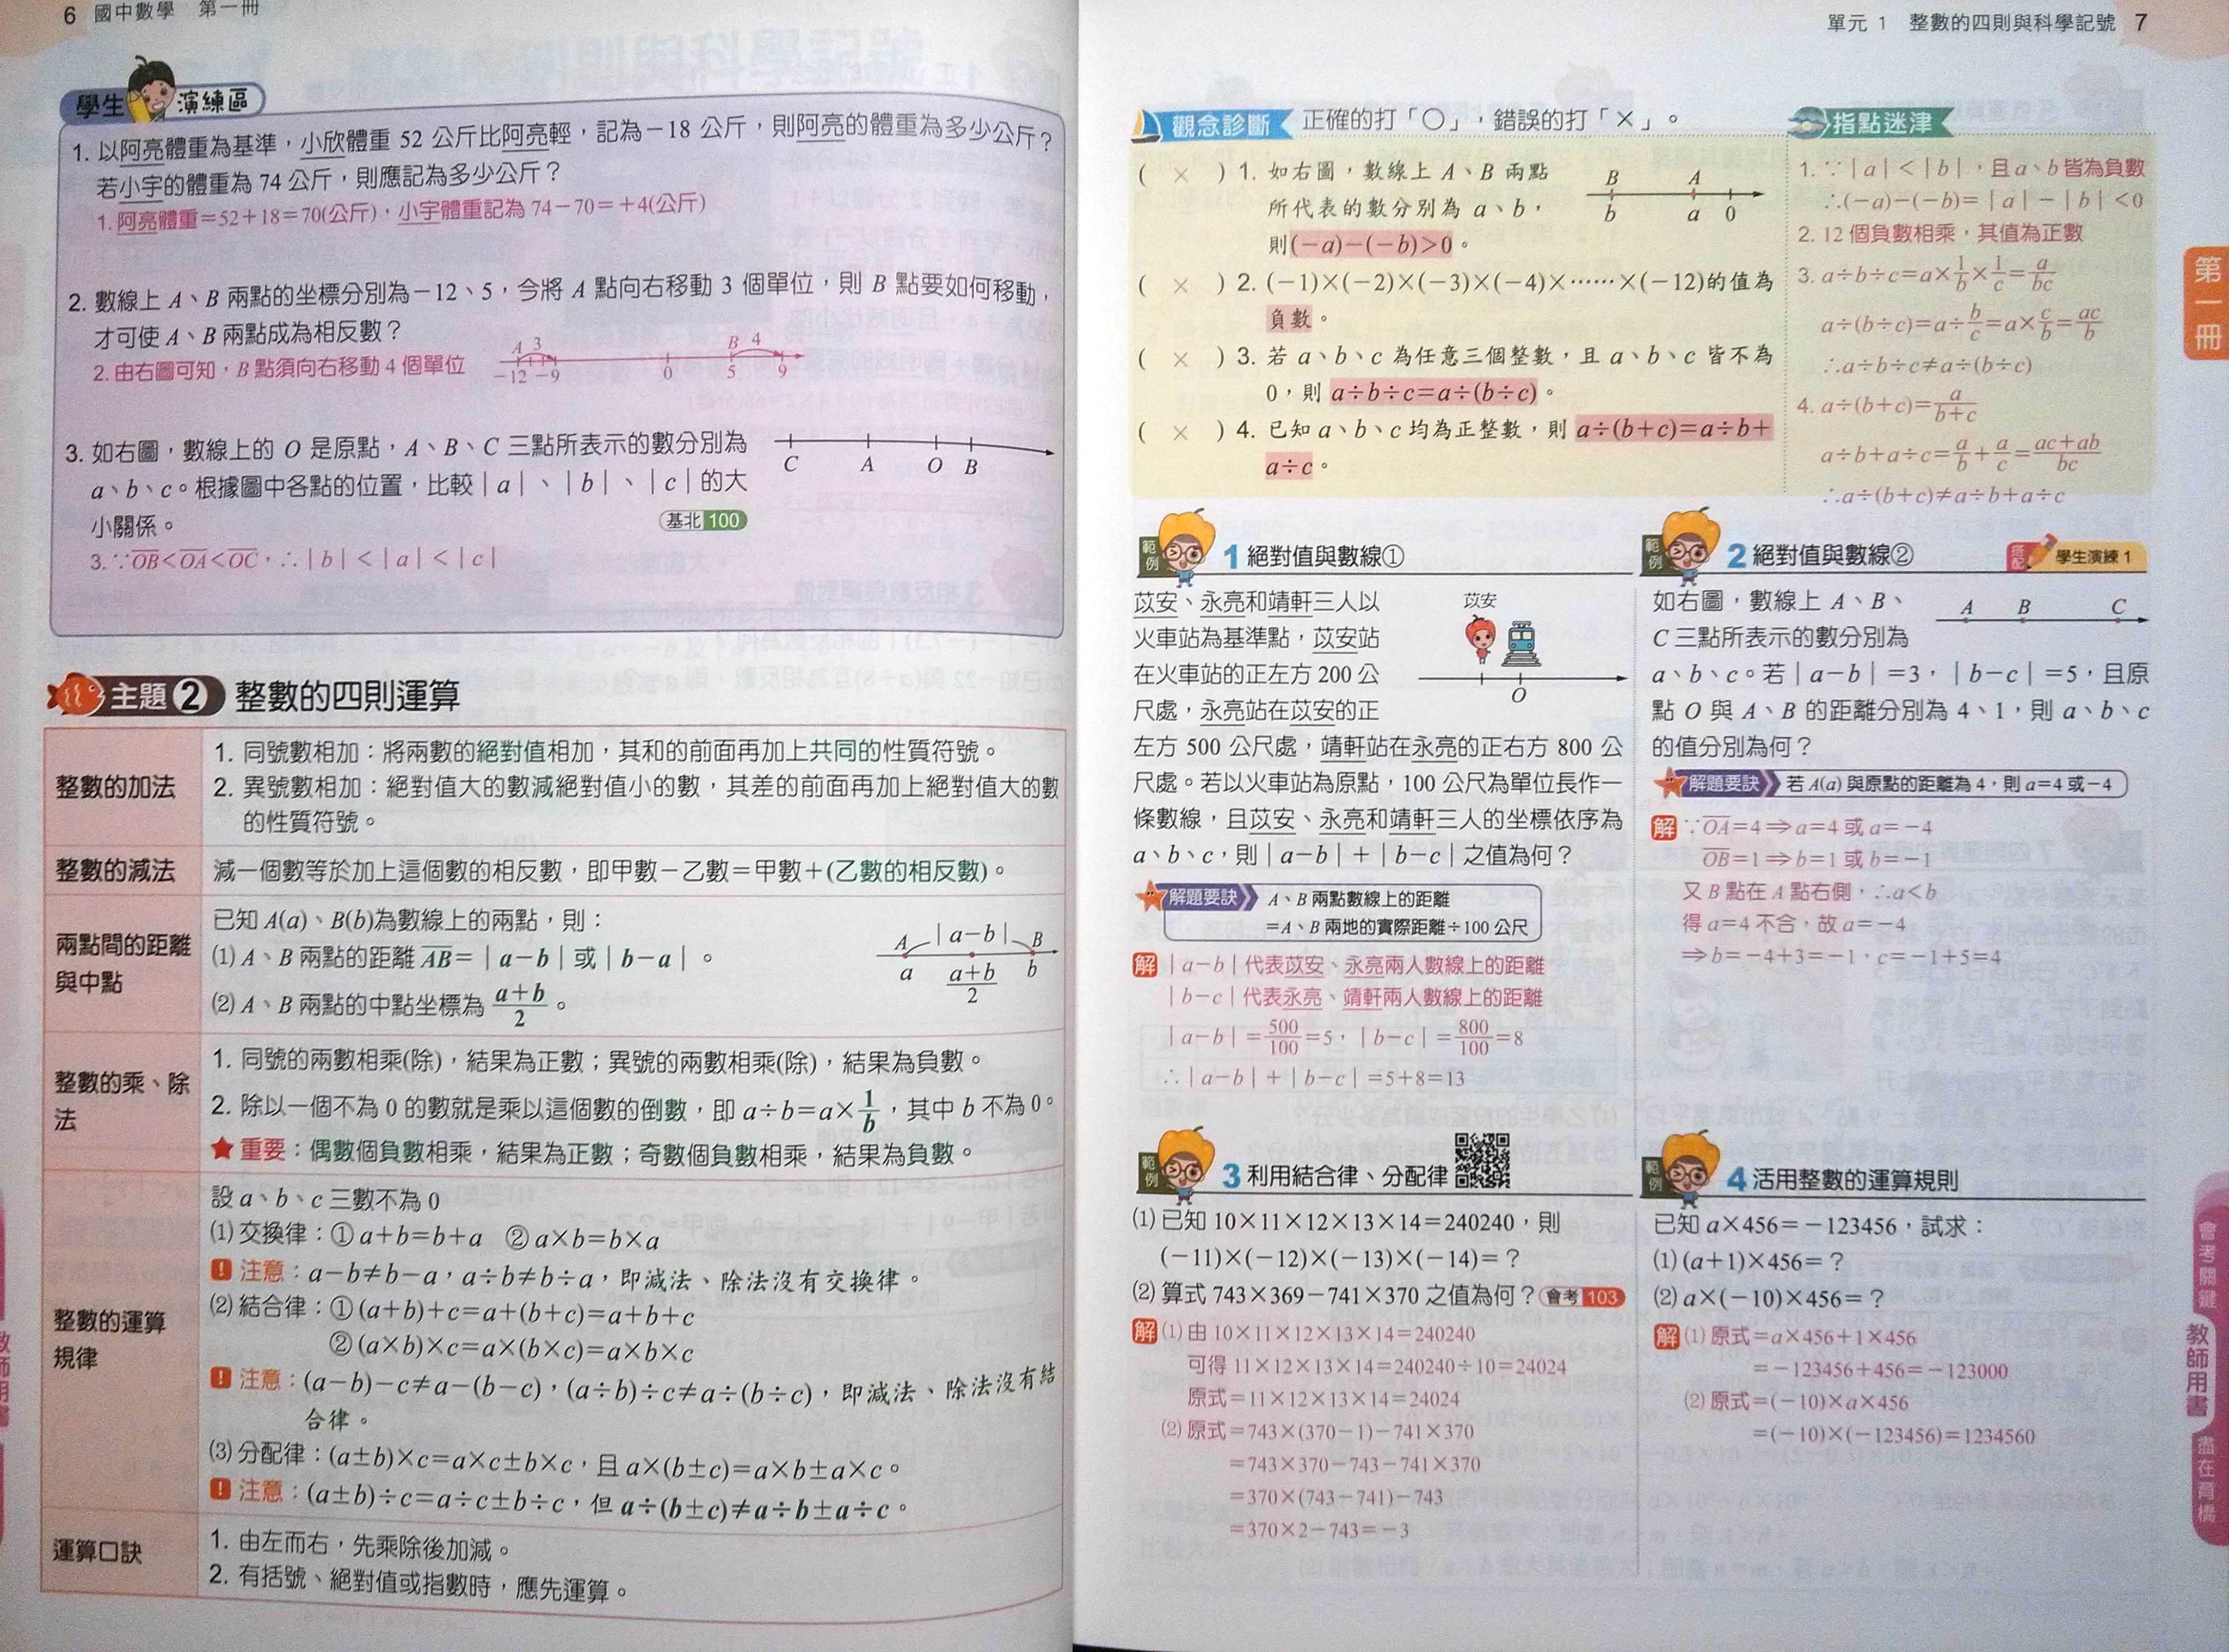 6 國中數學 第一冊
學生演練區
1. 以阿亮體重為基準，小欣體重 52 公斤比阿亮輕，記為－18 公斤，則阿亮的體重為多少公斤？
若小宇的體重為 74 公斤，則應記為多少公斤？
1. 阿亮體重＝52＋18＝70(公斤)，小宇體重記為 74－70＝＋4(公斤)
2. 數線上 A、B 兩點的坐標分別為－12、5，今將 A 點向右移動 3 個單位，則 B 點要如何移動，
才可使 A、B 兩點成為相反數？
2. 由右圖可知，B 點須向右移動 4 個單位
A 3 B 4
－12 －9 0 5 9
3. 如右圖，數線上的 O 是原點，A、B、C 三點所表示的數分別為
a、b、c。根據圖中各點的位置，比較｜a｜、｜b｜、｜c｜的大
小關係。
基北 100
C A O B
3. ∵OB＜OA＜OC，∴｜b｜＜｜a｜＜｜c｜
主題 2 整數的四則運算
整數的加法
1. 同號數相加：將兩數的絕對值相加，其和的前面再加上共同的性質符號。
2. 異號數相加：絕對值大的數減絕對值小的數，其差的前面再加上絕對值大的數
的性質符號。
整數的減法
減一個數等於加上這個數的相反數，即甲數－乙數＝甲數＋(乙數的相反數)。
兩點間的距離
與中點
已知 A(a)、B(b)為數線上的兩點，則：
(1) A、B 兩點的距離 AB＝｜a－b｜或｜b－a｜。
(2) A、B 兩點的中點坐標為 (a＋b)/2。
A ｜a－b｜ B
a (a＋b)/2 b
整數的乘、除
法
1. 同號的兩數相乘(除)，結果為正數；異號的兩數相乘(除)，結果為負數。
2. 除以一個不為 0 的數就是乘以這個數的倒數，即 a÷b＝a×1/b，其中 b 不為 0。
★重要：偶數個負數相乘，結果為正數；奇數個負數相乘，結果為負數。
整數的運算
規律
設 a、b、c 三數不為 0
(1) 交換律：① a＋b＝b＋a ② a×b＝b×a
！注意：a－b≠b－a，a÷b≠b÷a，即減法、除法沒有交換律。
(2) 結合律：① (a＋b)＋c＝a＋(b＋c)＝a＋b＋c
② (a×b)×c＝a×(b×c)＝a×b×c
！注意：(a－b)－c≠a－(b－c)，(a÷b)÷c≠a÷(b÷c)，即減法、除法沒有結
合律。
(3) 分配律：(a±b)×c＝a×c±b×c，且 a×(b±c)＝a×b±a×c。
！注意：(a±b)÷c＝a÷c±b÷c，但 a÷(b±c)≠a÷b±a÷c。
運算口訣
1. 由左而右，先乘除後加減。
2. 有括號、絕對值或指數時，應先運算。
單元 1 整數的四則與科學記號 7
觀念診斷 正確的打「○」，錯誤的打「×」。
( × ) 1. 如右圖，數線上 A、B 兩點
所代表的數分別為 a、b，
則(－a)－(－b)＞0。
B A
b a 0
( × ) 2. (－1)×(－2)×(－3)×(－4)×……×(－12)的值為
負數。
( × ) 3. 若 a、b、c 為任意三個整數，且 a、b、c 皆不為
0，則 a÷b÷c＝a÷(b÷c)。
( × ) 4. 已知 a、b、c 均為正整數，則 a÷(b＋c)＝a÷b＋
a÷c。
指點迷津
1. ∵｜a｜＜｜b｜，且 a、b 皆為負數
∴(－a)－(－b)＝｜a｜－｜b｜＜0
2. 12 個負數相乘，其值為正數
3. a÷b÷c＝a×1/b×1/c＝a/bc
a÷(b÷c)＝a÷b/c＝a×c/b＝ac/b
∴a÷b÷c≠a÷(b÷c)
4. a÷(b＋c)＝a/(b＋c)
a÷b＋a÷c＝a/b＋a/c＝(ac＋ab)/bc
∴a÷(b＋c)≠a÷b＋a÷c
範例 1 絕對值與數線①
苡安、永亮和靖軒三人以
火車站為基準點，苡安站
在火車站的正左方 200 公
尺處，永亮站在苡安的正
左方 500 公尺處，靖軒站在永亮的正右方 800 公
尺處。若以火車站為原點，100 公尺為單位長作一
條數線，且苡安、永亮和靖軒三人的坐標依序為
a、b、c，則｜a－b｜＋｜b－c｜之值為何？
苡安
O
解題要訣 A、B 兩點數線上的距離
＝A、B 兩地的實際距離÷100 公尺
解 ｜a－b｜代表苡安、永亮兩人數線上的距離
｜b－c｜代表永亮、靖軒兩人數線上的距離
｜a－b｜＝500/100＝5，｜b－c｜＝800/100＝8
∴｜a－b｜＋｜b－c｜＝5＋8＝13
範例 2 絕對值與數線② 搭配 學生演練 1
如右圖，數線上 A、B、
C 三點所表示的數分別為
a、b、c。若｜a－b｜＝3，｜b－c｜＝5，且原
點 O 與 A、B 的距離分別為 4、1，則 a、b、c
的值分別為何？
A B C
解題要訣 若 A(a) 與原點的距離為 4，則 a＝4 或－4
解 ∵OA＝4⇒a＝4 或 a＝－4
OB＝1⇒b＝1 或 b＝－1
又 B 點在 A 點右側，∴a＜b
得 a＝4 不合，故 a＝－4
⇒b＝－4＋3＝－1，c＝－1＋5＝4
範例 3 利用結合律、分配律
(1) 已知 10×11×12×13×14＝240240，則
(－11)×(－12)×(－13)×(－14)＝？
(2) 算式 743×369－741×370 之值為何？ 會考 103
解 (1) 由 10×11×12×13×14＝240240
可得 11×12×13×14＝240240÷10＝24024
原式＝11×12×13×14＝24024
(2) 原式＝743×(370－1)－741×370
＝743×370－743－741×370
＝370×(743－741)－743
＝370×2－743＝－3
範例 4 活用整數的運算規則
已知 a×456＝－123456，試求：
(1) (a＋1)×456＝？
(2) a×(－10)×456＝？
解 (1) 原式＝a×456＋1×456
＝－123456＋456＝－123000
(2) 原式＝(－10)×a×456
＝(－10)×(－123456)＝1234560
第一冊
會考關鍵 教師用書 盡在育橋